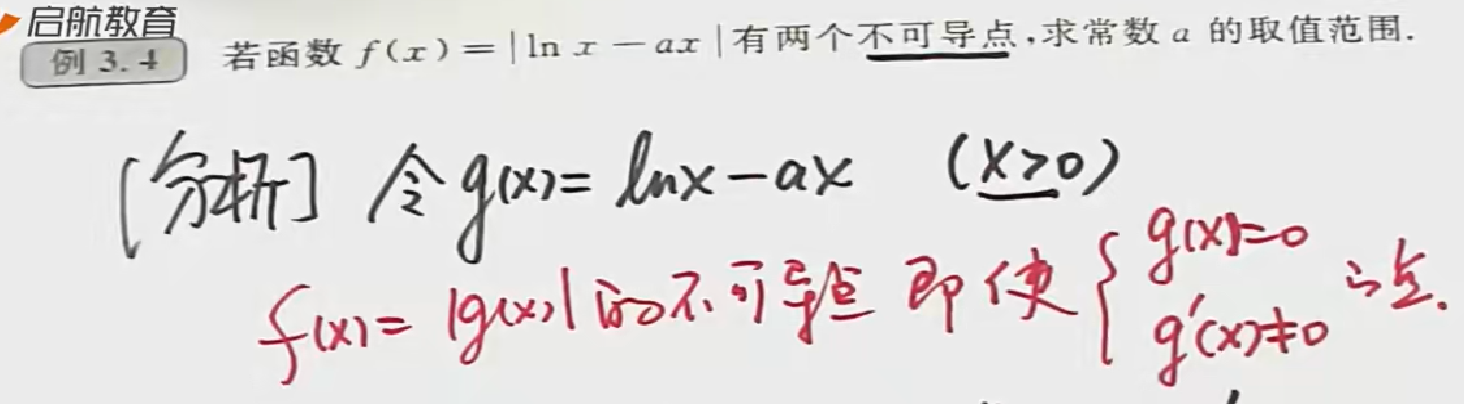 启航教育
例 3.4 若函数 f(x)=|ln x-ax|有两个不可导点,求常数 a 的取值范围.
[分析] 令g(x)=lnx-ax (x>0)
f(x)=|g(x)|的不可导点 即使{g(x)=0 g'(x)≠0 之点.